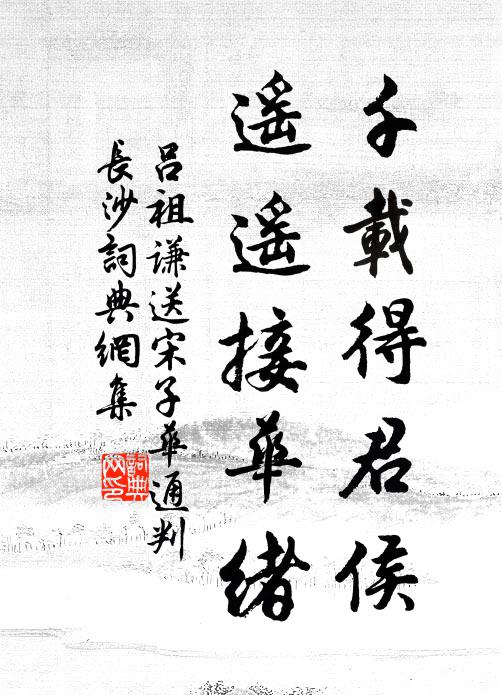 千載得君侯
遥遥接華緒
呂祖谦送宋子華通判
長沙詞典網集
詞典
网印